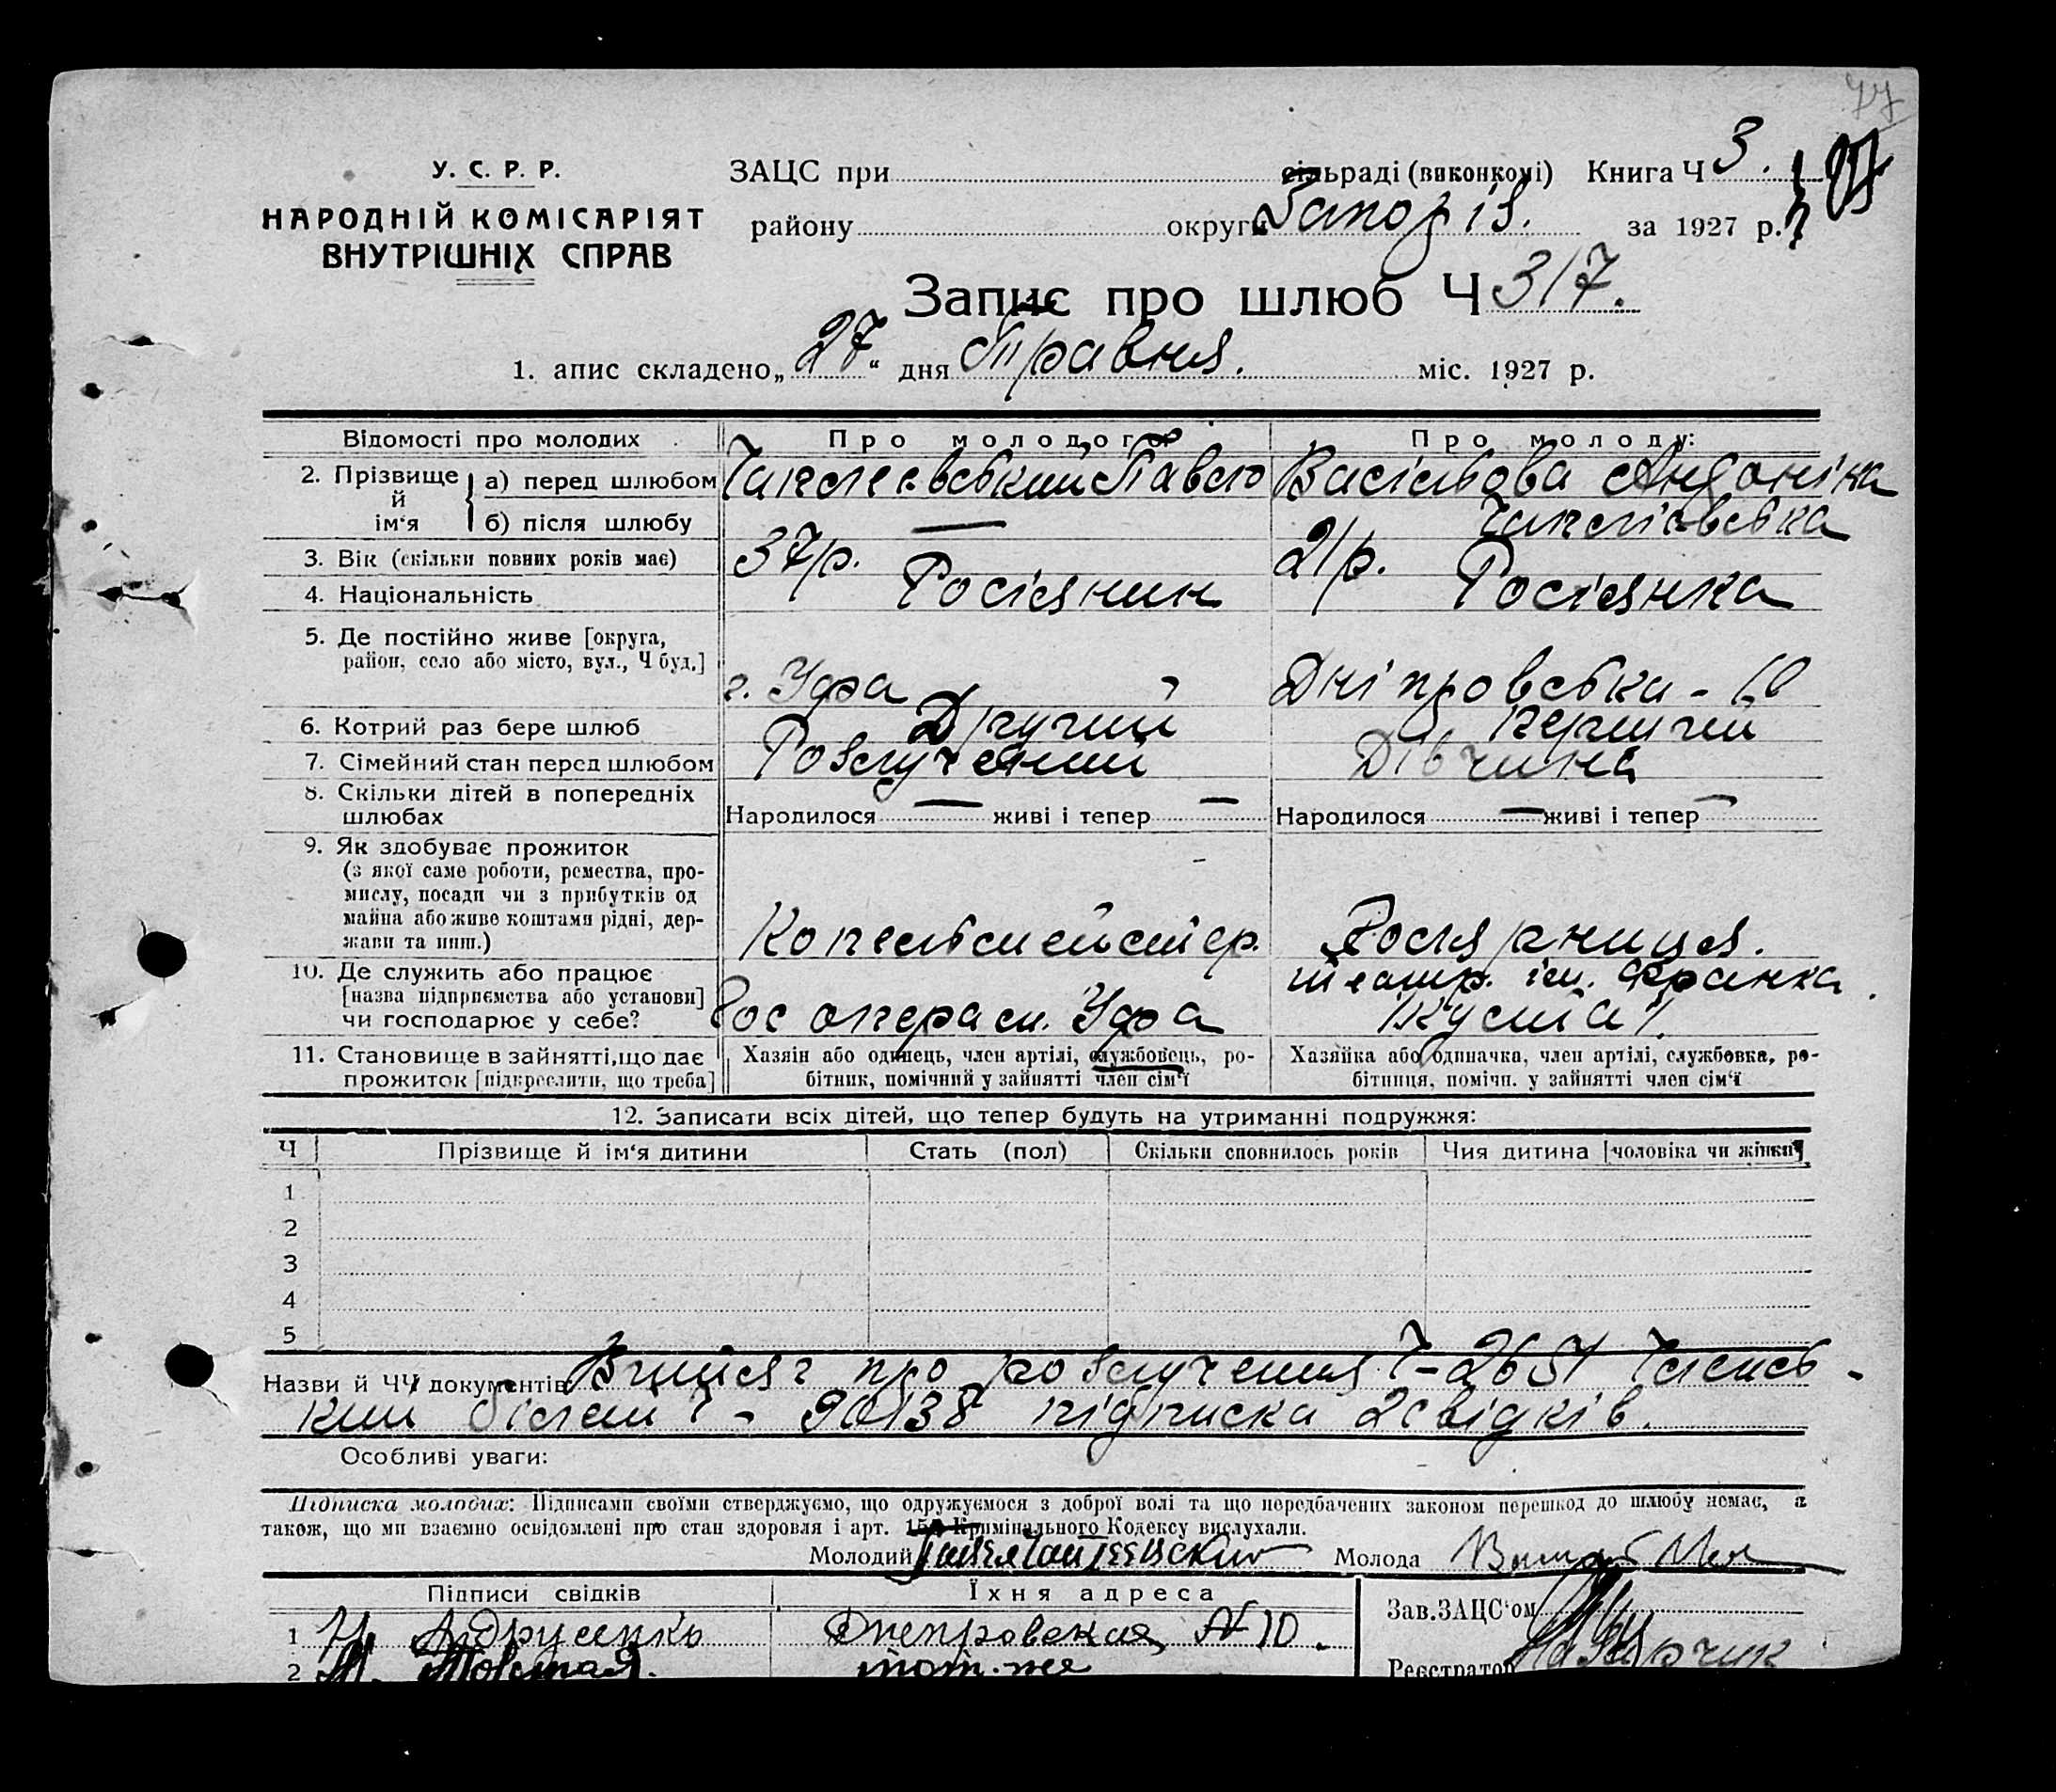 77
У. С. Р. Р.
НАРОДНІЙ КОМІСАРІЯТ
ВНУТРІШНІХ СПРАВ
ЗАЦС при сільраді (виконкомі) Книга Ч 3.
району округи Запоріз. за 1927 р.
Запис про шлюб Ч 317.
1. апис складено „27“ дня Травня. міс. 1927 р.
Відомості про молодих Про молодого: Про молоду:
2. Прізвище й ім‘я а) перед шлюбом Чаплеєвський Павло Васільова Андоніна
б) після шлюбу — Чаплієвська
3. Вік (скільки повних років має) 37р. 21р.
4. Національність Росіянин Росіянка
5. Де постійно живе [округа,
район, село або місто, вул., Ч буд.] г. Уфа Дніпровська - 10
6. Котрий раз бере шлюб Другий перший
7. Сімейний стан перед шлюбом Розлучений Дівчина
8. Скільки дітей в попередніх
шлюбах Народилося — живі і тепер — Народилося — живі і тепер —
9. Як здобуває прожиток
(з якої саме роботи, ремества, про-
мислу, посади чи з прибутків од
майна або живе коштами рідні, дер-
жави та инш.) Капельмейстер.
10. Де служить або працює театр. ім. Франка
[назва підприємства або установи]
чи господарює у себе? Гос опера м. Уфа
11. Становище в зайнятті, що дає Хазяїн або одинець, член артілі, службовець, ро- Хазяйка або одиначка, член артілі, службовка, ро-
прожиток [підкреслити, що треба] бітник, помічний у зайнятті член сім‘ї бітниця, помічн. у зайнятті член сім‘ї
12. Записати всіх дітей, що тепер будуть на утриманні подружжя:
Ч Прізвище й ім‘я дитини Стать (пол) Скільки сповнилось років Чия дитина [чоловіка чи жінки]
1
2
3
4
5
Назви й ЧЧ документів Витяг про розлучення Ч-2651 Членсь-
кий білет Ч - 90138 підписка 2 свідків.
Особливі уваги:
Підписка молодих: Підписами своїми стверджуємо, що одружуємося з доброї волі та що передбачених законом перешкод до шлюбу немає, а
також, що ми взаємно освідомлені про стан здоровля і арт. Кримінального Кодексу вислухали.
Молодий Молода
Підписи свідків Їхня адреса Зав. ЗАЦС‘ом
1 Днепровская № 10.
2 М. Толстая. там-же Реєстратор